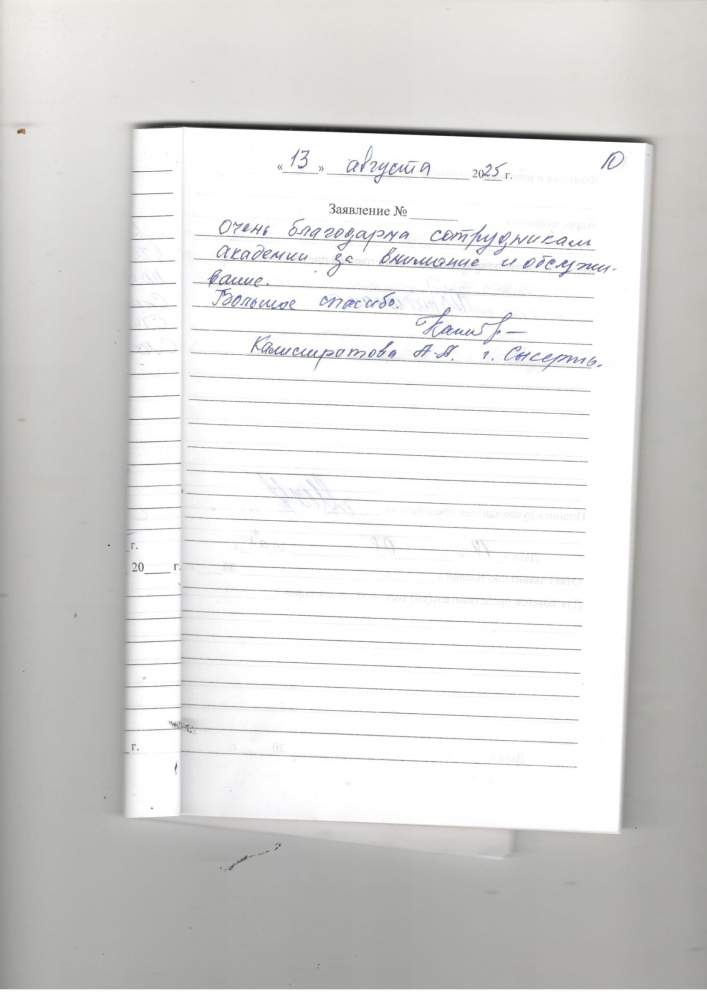 10
«13» августа 2025 г.
Заявление №
Очень благодарна сотрудникам
академии за внимание и обслужи-
вание.
Большое спасибо.
Калистратова А.А. г. Сысерть.
г.
20 г.
г.